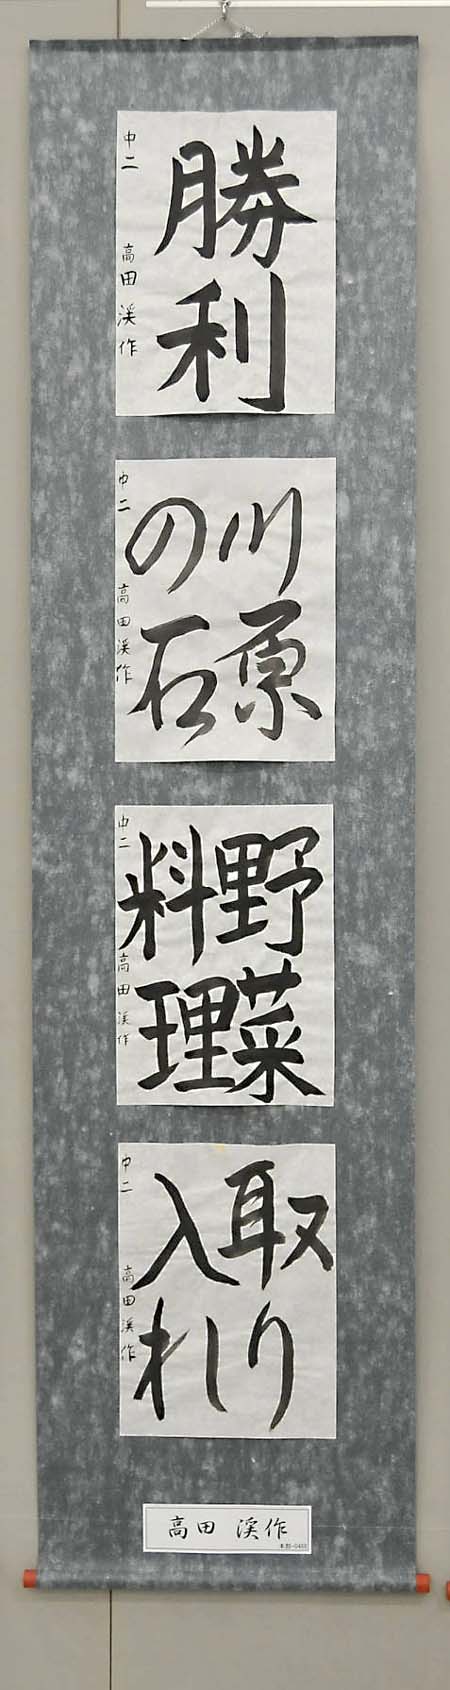 勝利
中二 高田渓作
川原
の石
中二 高田渓作
野菜
料理
中二 高田渓作
取り
入れ
中二 高田渓作
高田 渓作